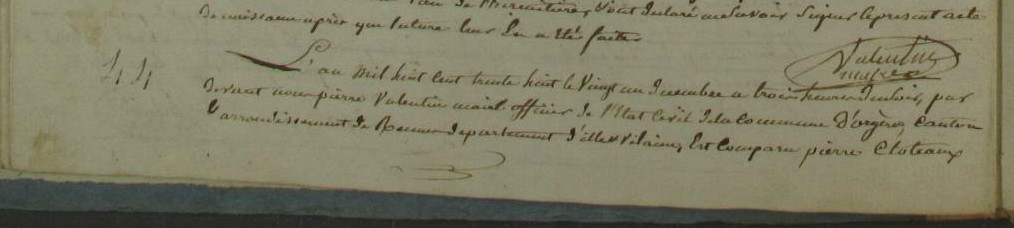 de l'hermitière, ont déclaré ne savoir signer le present acte
de naissance après que lecture leur en a été faite
Valentin
maire
44
L'an mil huit cent trente huit le vingt un decembre a trois heures du soir, par
devant nous pierre Valentin maire officier de l'Etat Civil de la Commune D'orgères, Canton
arrondissement de Rennes departement d'ille et Vilaine, Est Comparu pierre Cloteaux